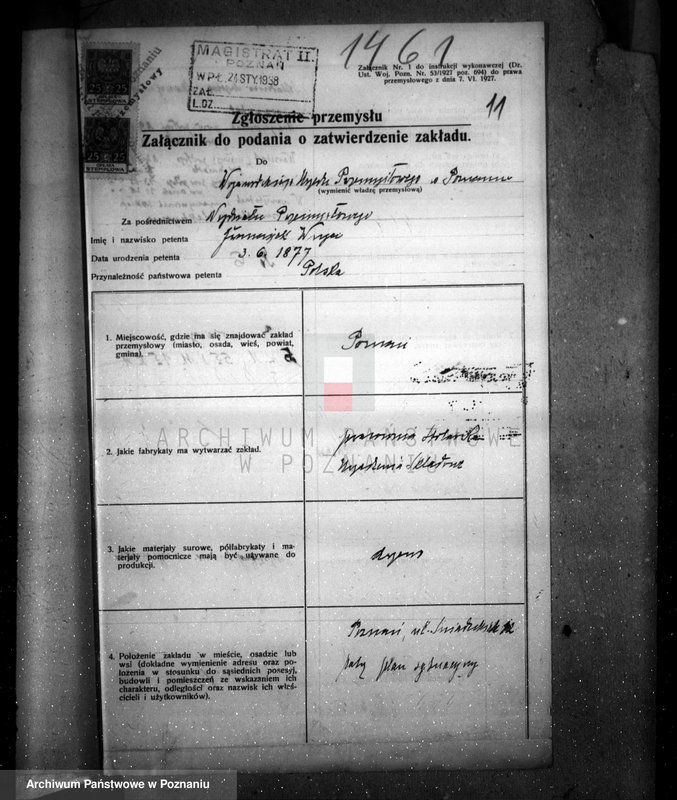 1461
MAGISTRAT II.
POZNAŃ
WPŁ. 24 STY. 1938
ZAŁ.
L. DZ.
Załącznik Nr. 1 do instrukcji wykonawczej (Dz.
Ust. Woj. Pozn. Nr. 53/1927 poz. 694) do prawa
przemysłowego z dnia 7. VI. 1927.
11
25 25
25 25
Zgłoszenie przemysłu
Załącznik do podania o zatwierdzenie zakładu.
Do
Przemysłowego w Poznaniu
(wymienić władzę przemysłową)
Za pośrednictwem Wydziału Przemysłowego
Imię i nazwisko petenta
Data urodzenia petenta 3. 6. 1877
Przynależność państwowa petenta Polska
1. Miejscowość, gdzie ma się znajdować zakład
przemysłowy (miasto, osada, wieś, powiat,
gmina).
Poznań
ARCHIWUM PAŃSTWOWE
W POZNANIU
2. Jakie fabrykaty ma wytwarzać zakład.
pracownia stolarska
3. Jakie materjały surowe, półfabrykaty i ma-
terjały pomocnicze mają być używane do
produkcji.
4. Położenie zakładu w mieście, osadzie lub
wsi (dokładne wymienienie adresu oraz po-
łożenia w stosunku do sąsiednich posesyj,
budowli i pomieszczeń ze wskazaniem ich
charakteru, odległości oraz nazwisk ich wieś-
cicieli i użytkowników).
Poznań, ul.
plan sytuacyjny
Archiwum Państwowe w Poznaniu